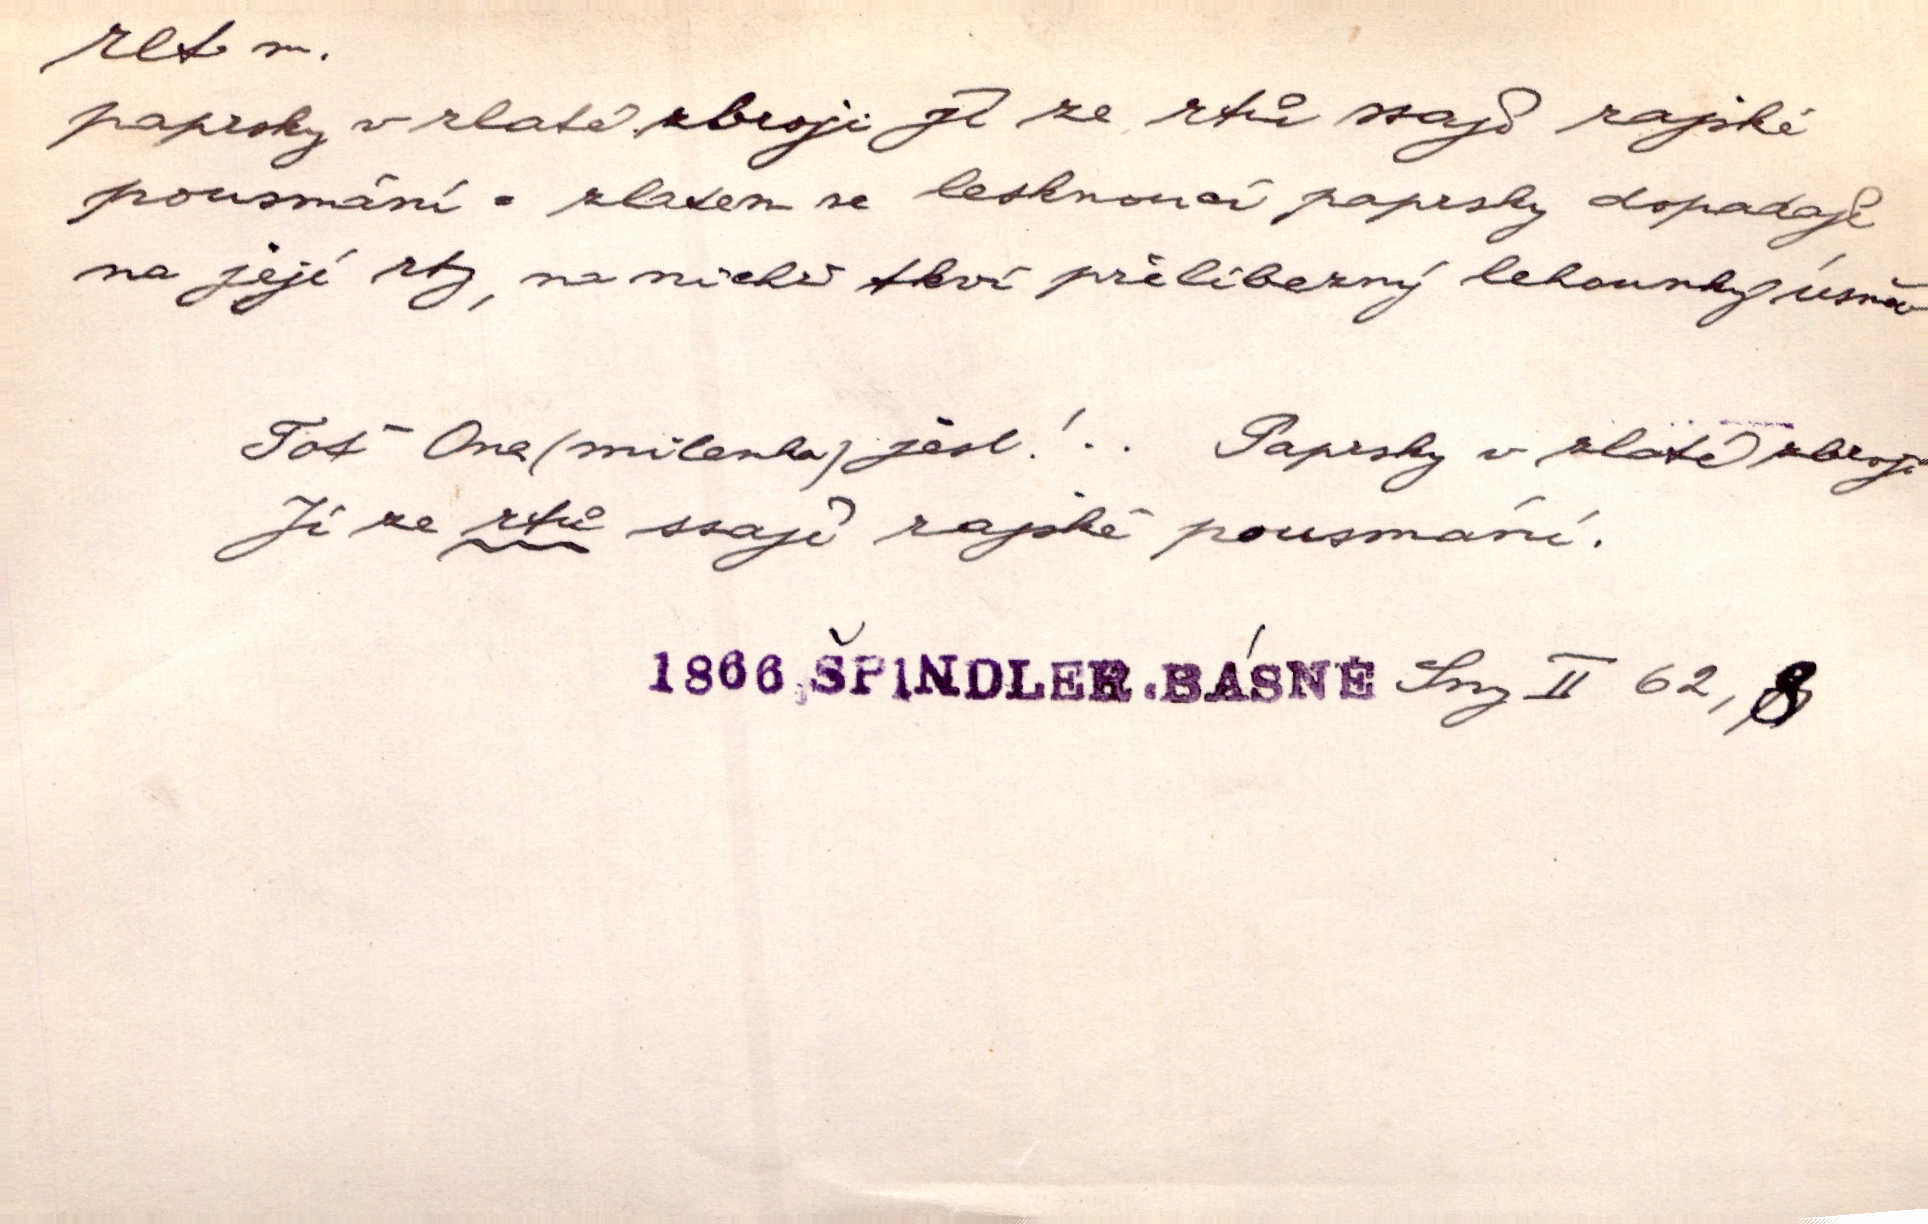 ret m.
paprsky v zlaté zbroji jí ze rtů ssají rajské
pousmání = zlatem se lesknoucí paprsky dopadají
na její rty, na nichž tkví přelíbezný lehounký úsměv
Toť Ona (milenka) jest!.. Paprsky v zlaté zbroji
Jí ze rtů ssají rajské pousmání.
1866 ŠPINDLER.BÁSNĚ Sny II 62, 8